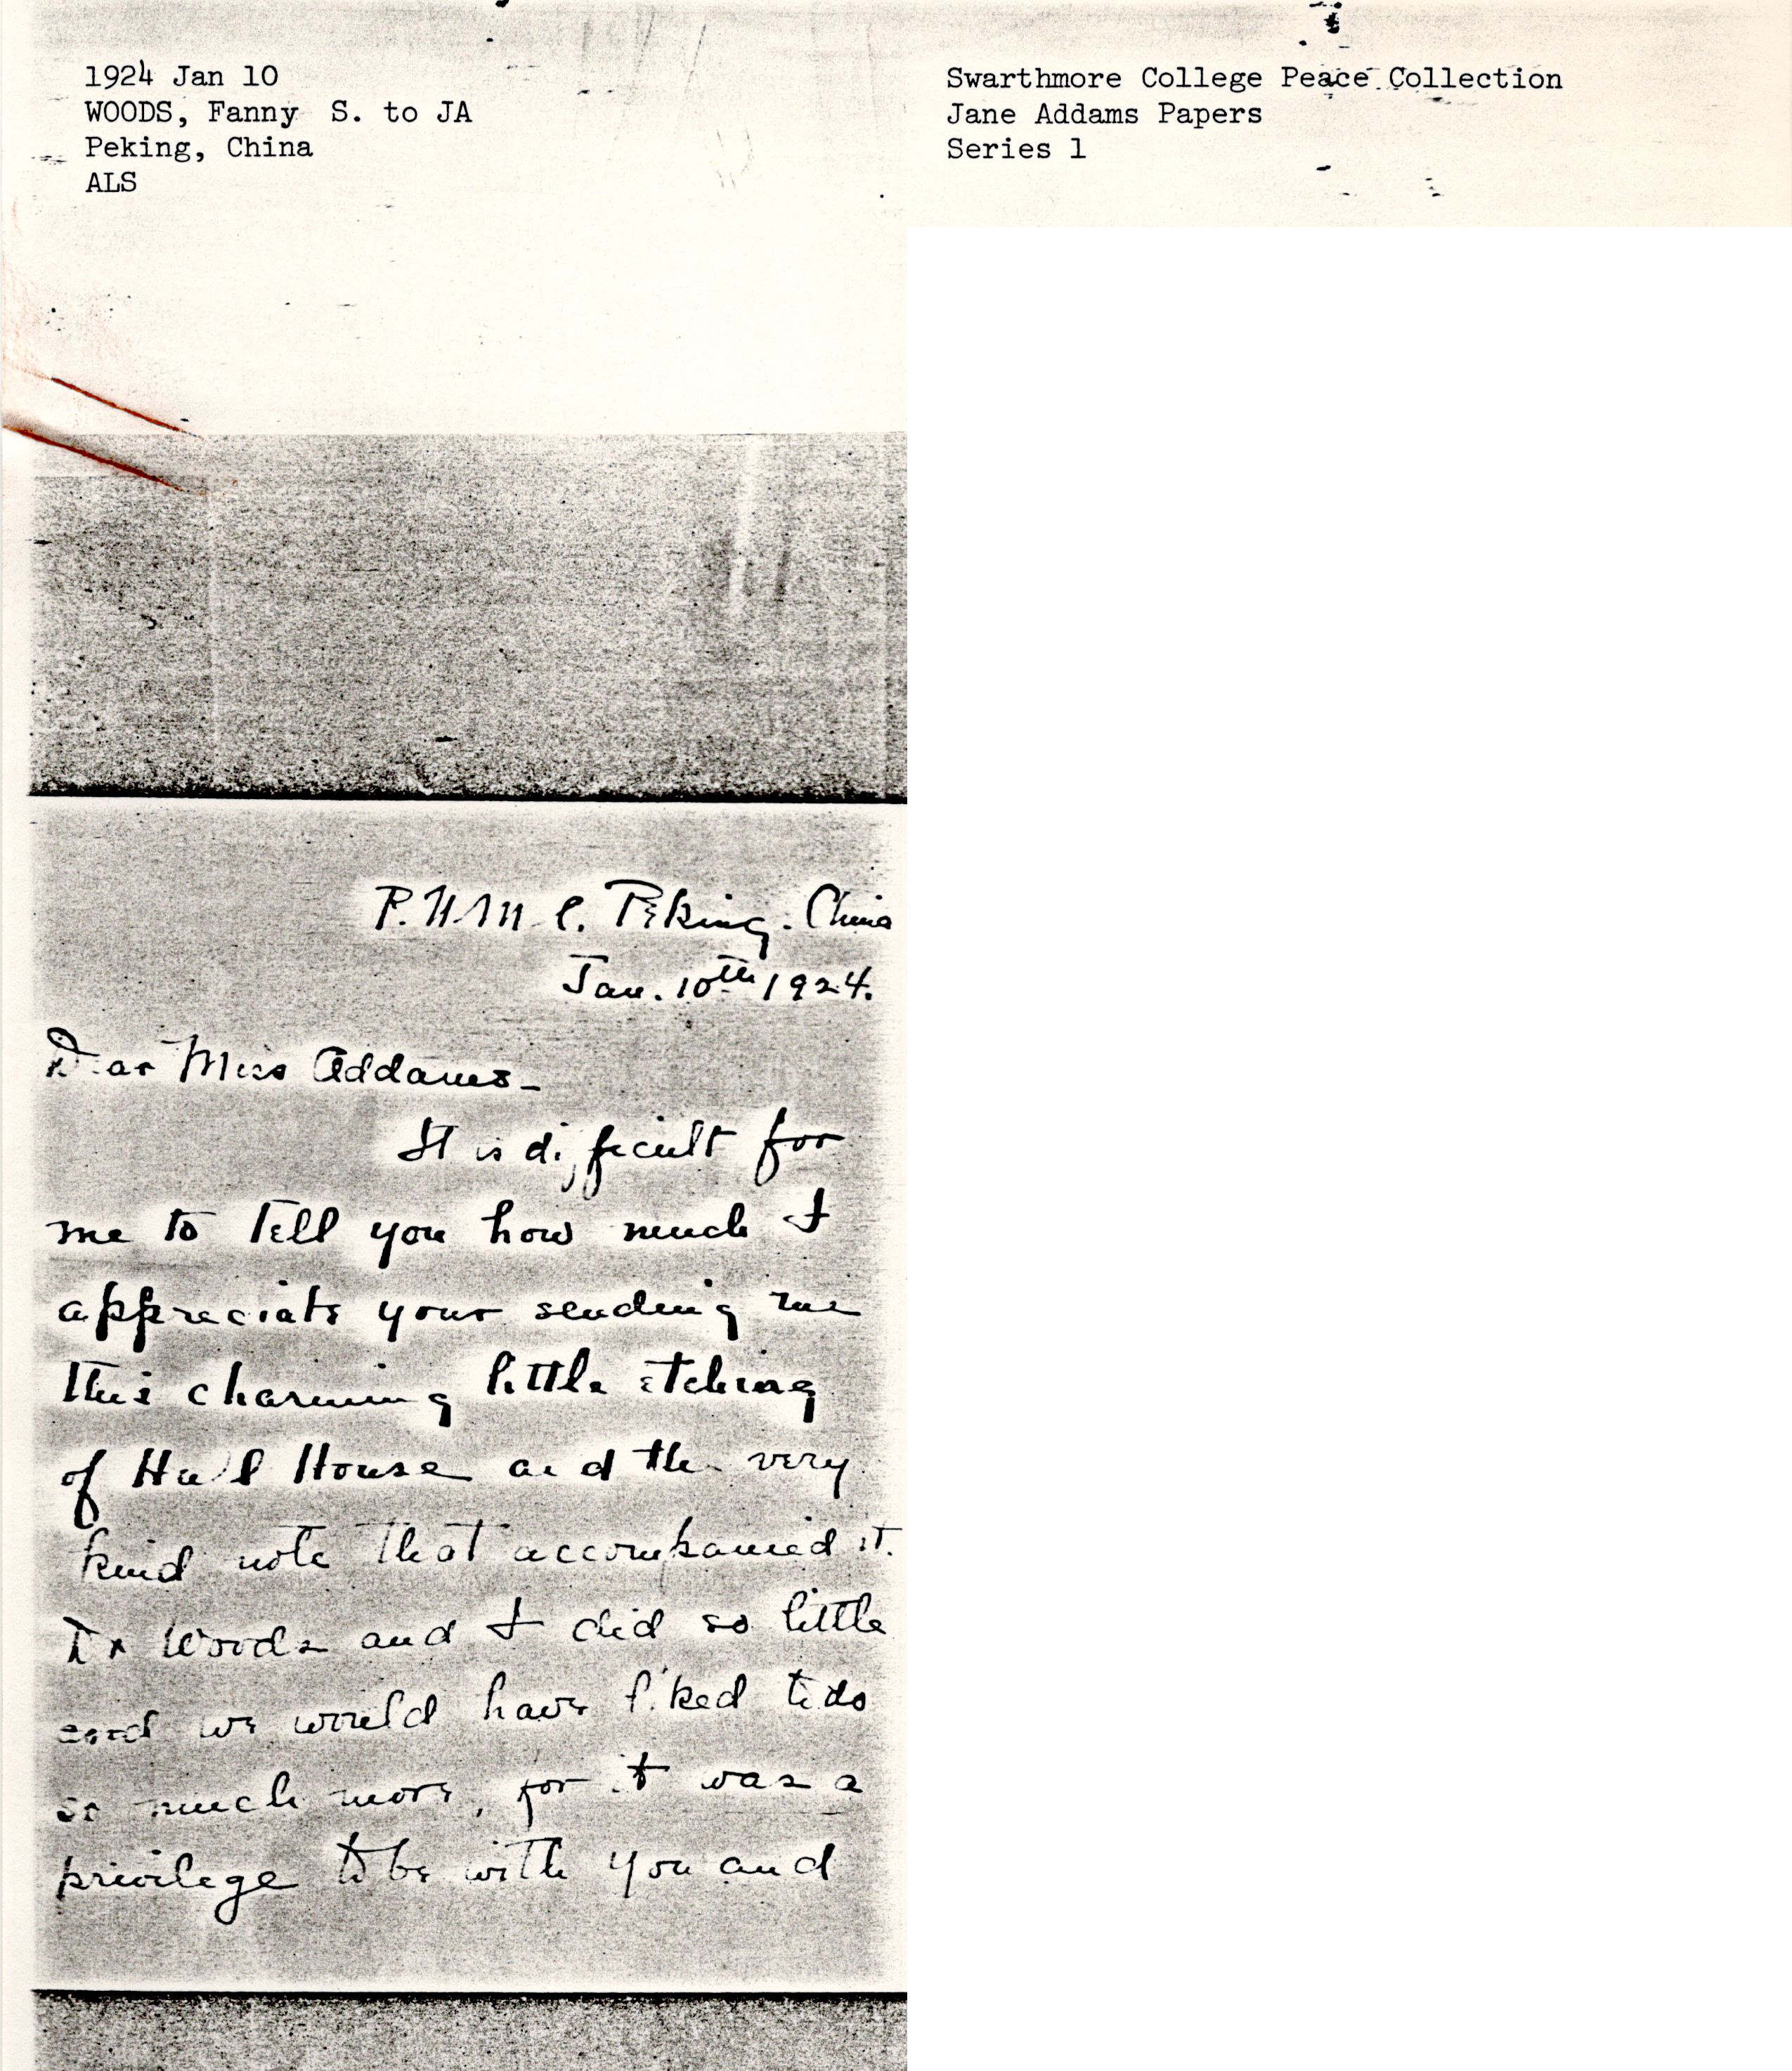 1924 Jan 10
WOODS, Fanny S. to JA
Peking, China
ALS
Swarthmore College Peace Collection
Jane Addams Papers
Series 1
P.U.M.C. Peking. China
Jan. 10th 1924.
Dear Miss Addams-
It is difficult for
me to tell you how much I
appreciate your sending me
this charming little etching
of Hull House and the very
kind note that accompanied it.
Dr Woods and I did so little
and we would have liked to do
so much more, for it was a
privilege to be with you and